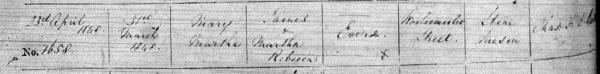 23rd April 1848 31st March 1848 Mary Martha James & Martha Rebecca Evered Street Stone Mason
No. 1658.